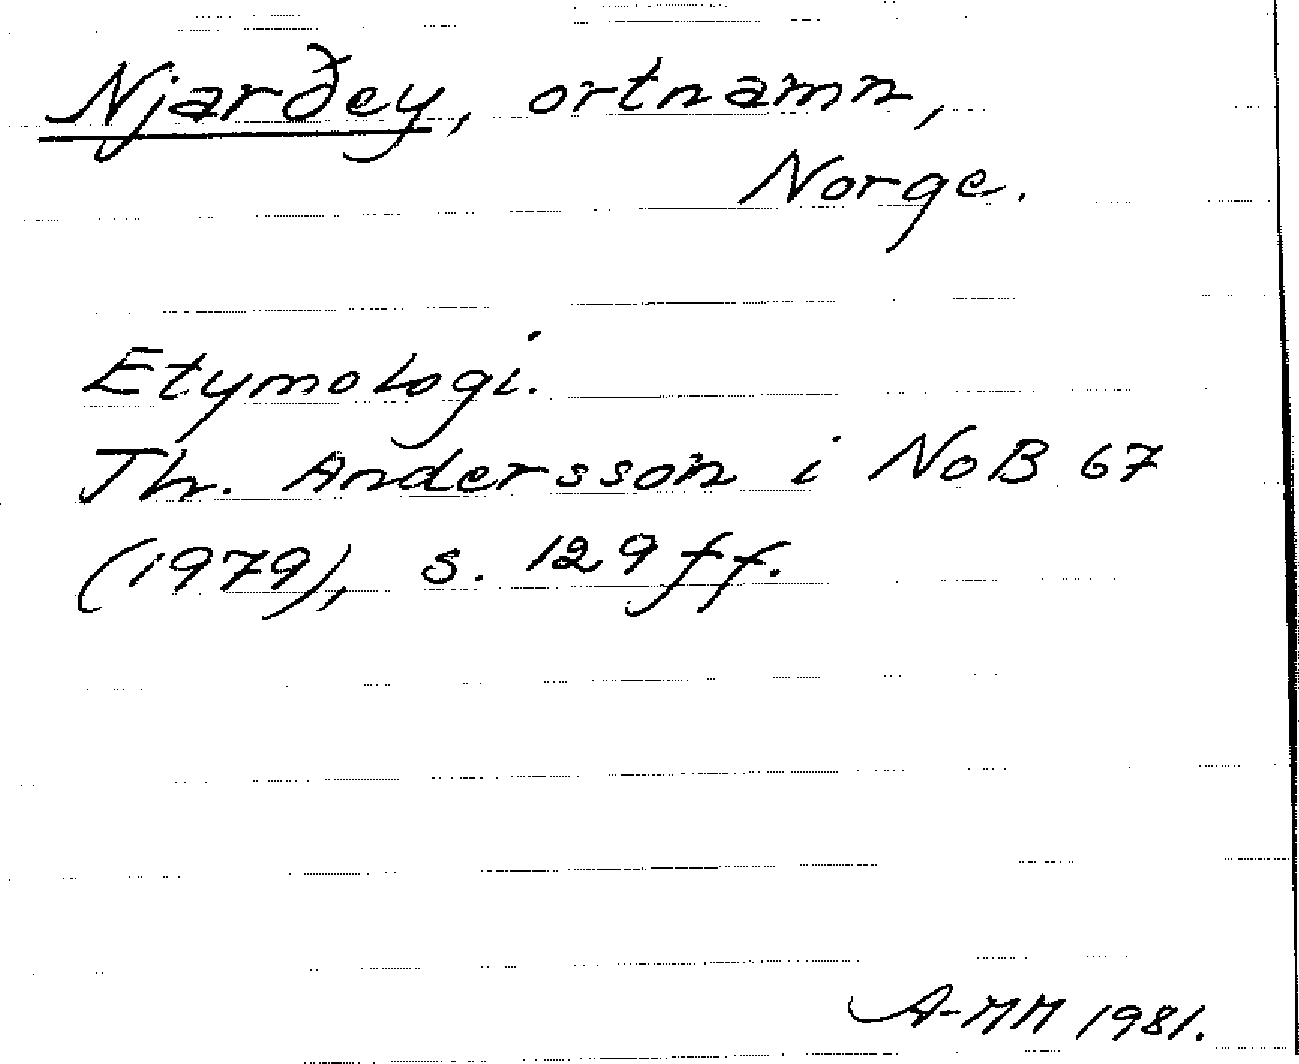 Njarðey, ortnamn,
Norge.
Etymologi.
Th. Andersson i NoB 67
(1979), s. 129 ff.
A-MM 1981.